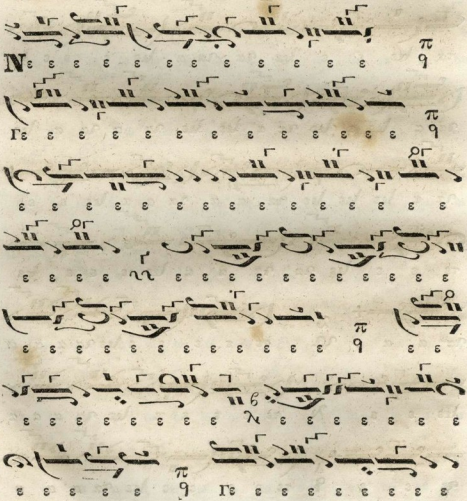 Νε ε ε ε ε ε ε ε ε ε ε ε ε ε π q
Γε ε ε ε ε ε ε ε ε ε ε ε ε ε ε ε π q
ε ε ε ε ε ε ε ε ε ε ε ε ε ε ε
ε ε ε ε ε ε ε ε ε ε ε ε ε ε ε
ε ε ε ε ε ε ε ε ε ε ε ε π q ε ε ε
ε ε ε ε ε ε ε ε λ ε ε ε ε ε ε ε
ε ε ε ε ε ε π q Γε ε ε ε ε ε ε ε ε